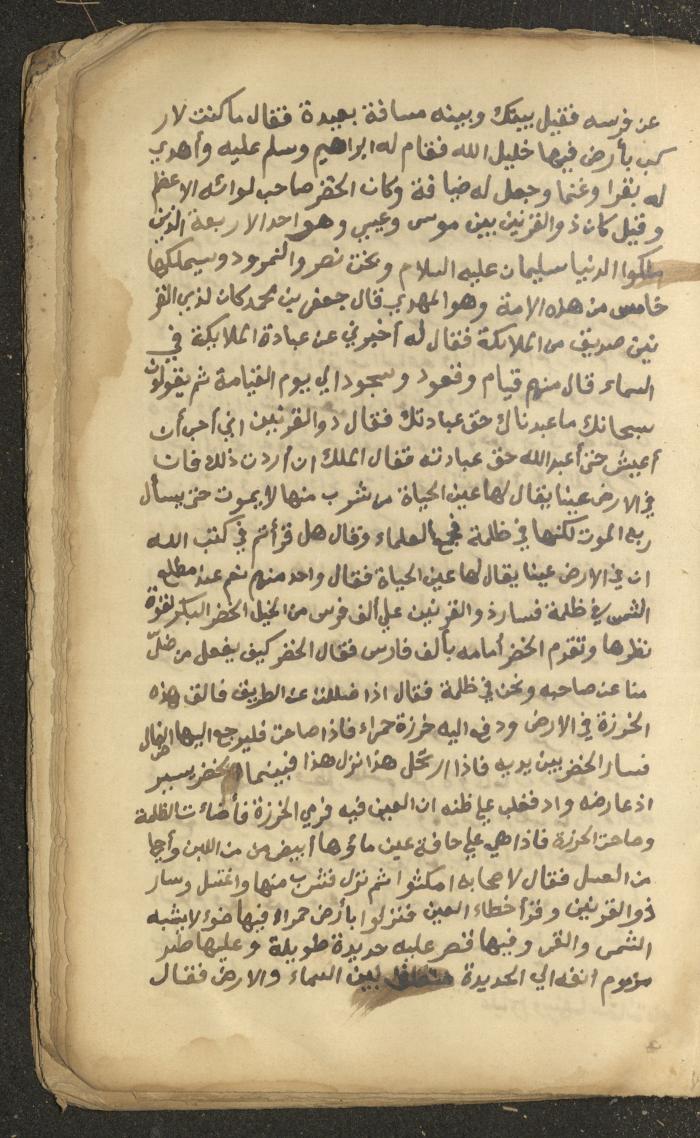 عن فرسه فقيل بينك وبينه مسافة بعيدة فقال ما كنت لار
كب بأرض فيها خليل الله فقام له ابراهيم وسلم عليه وأهدي
له بقرا وغنما وجعل له ضيافة وكان الخضر صاحب لوائه الاعظم
وقيل كان ذو القرنين بين موسى وعيسي وهو احد الاربعة الذين
ملكوا الدنيا سليمان عليه السلام وبخت نصر والنمرود وسيملكها
خامس من هذه الامة وهو المهدي قال جعفر بن محمد كان لذي القر
نين صديق من الملائكة فقال له أخبرني عن عبادة الملائكة في
السماء قال منهم قيام وقعود وسجود الي يوم القيامة ثم يقولون
سبحانك ما عبدناك حق عبادتك فقال ذو القرنين اني أحب أن
أعيش حتى أعبد الله حق عبادته فقال الملك ان أردت ذلك فان
في الارض عينا يقال لها عين الحياة من شرب منها لا يموت حتى يسأل
ربه الموت لكنها في ظلمة فجمع العلماء وقال هل قرأتم في كتب الله
ان في الارض عينا يقال لها عين الحياة فقال واحد منهم نعم عند مطلع
الشمس في ظلمة فسار ذو القرنين علي ألف فرس من الخيل الخضر البكر لقوة
نظرها وتقدم الخضر أمامه بألف فارس فقال الخضر كيف يفعل من ضل
منا عن صاحبه ونحن في ظلمة فقال اذا ضللت عن الطريق فالق هذه
الخرزة في الارض ودفع اليه خرزة حمراء فاذا صاحت فليرجع اليها الضال
فسار الخضر بين يديه فاذا ارتحل هذا نزل هذا فبينما الخضر يسير
اذ عارضه واد فغلب علي ظنه ان العين فيه فرمي الخرزة فأضاءت الظلمة
وصاحت الخرزة فاذا هي علي حافة عين ماؤها أبيض من من اللبن وأحلا
من العسل فقال لاصحابه امكثوا ثم نزل فشرب منها واغتسل وسار
ذو القرنين وقد أخطاء العين فنزلوا بأرض حمراء فيها ضوء لا يشبه
الشمس والقمر وفيها قصر عليه حديدة طويلة وعليها طير
مزموم انفه الي الحديدة بين السماء والارض فقال